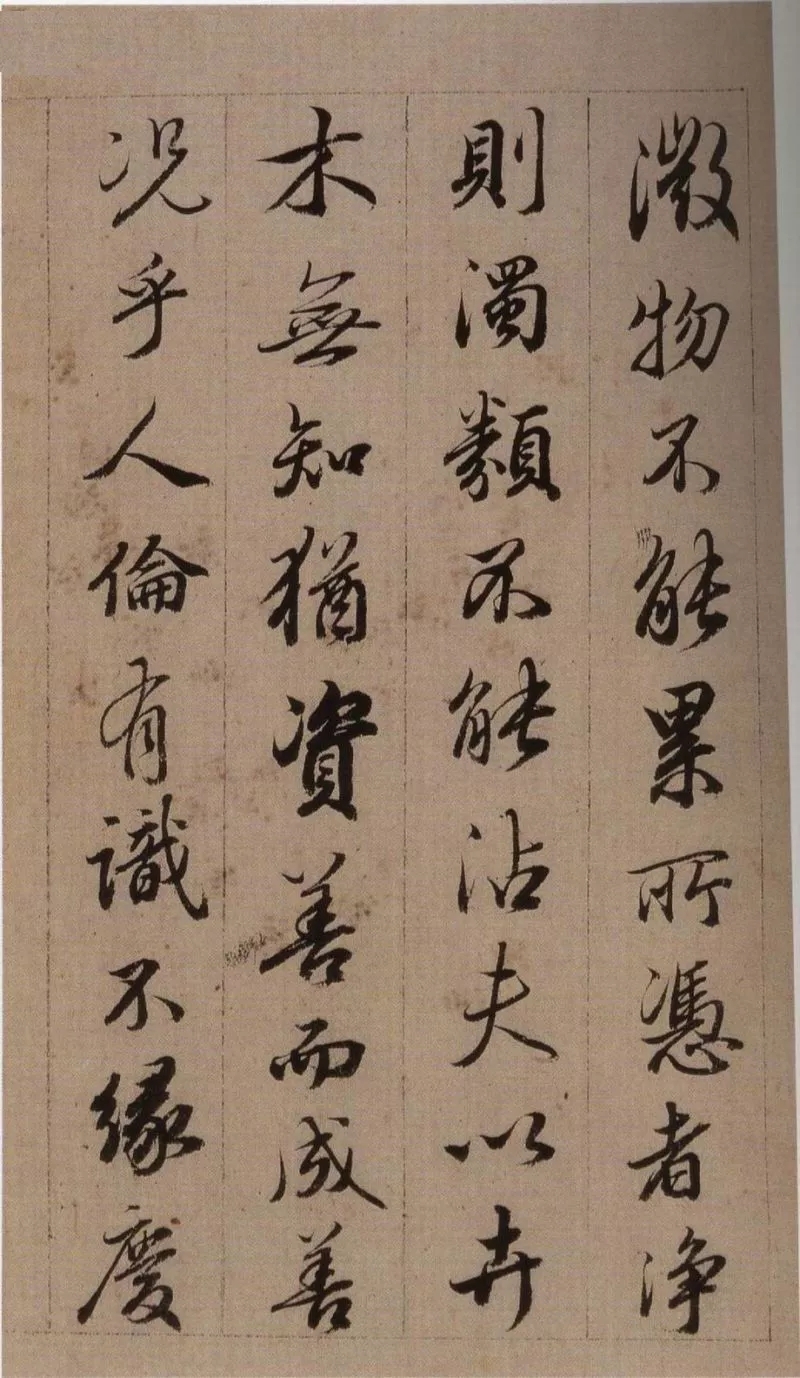 微物不能累所憑者浄
則濁類不能沾夫以卉
木無知猶資善而成善
况乎人倫有識不緣慶